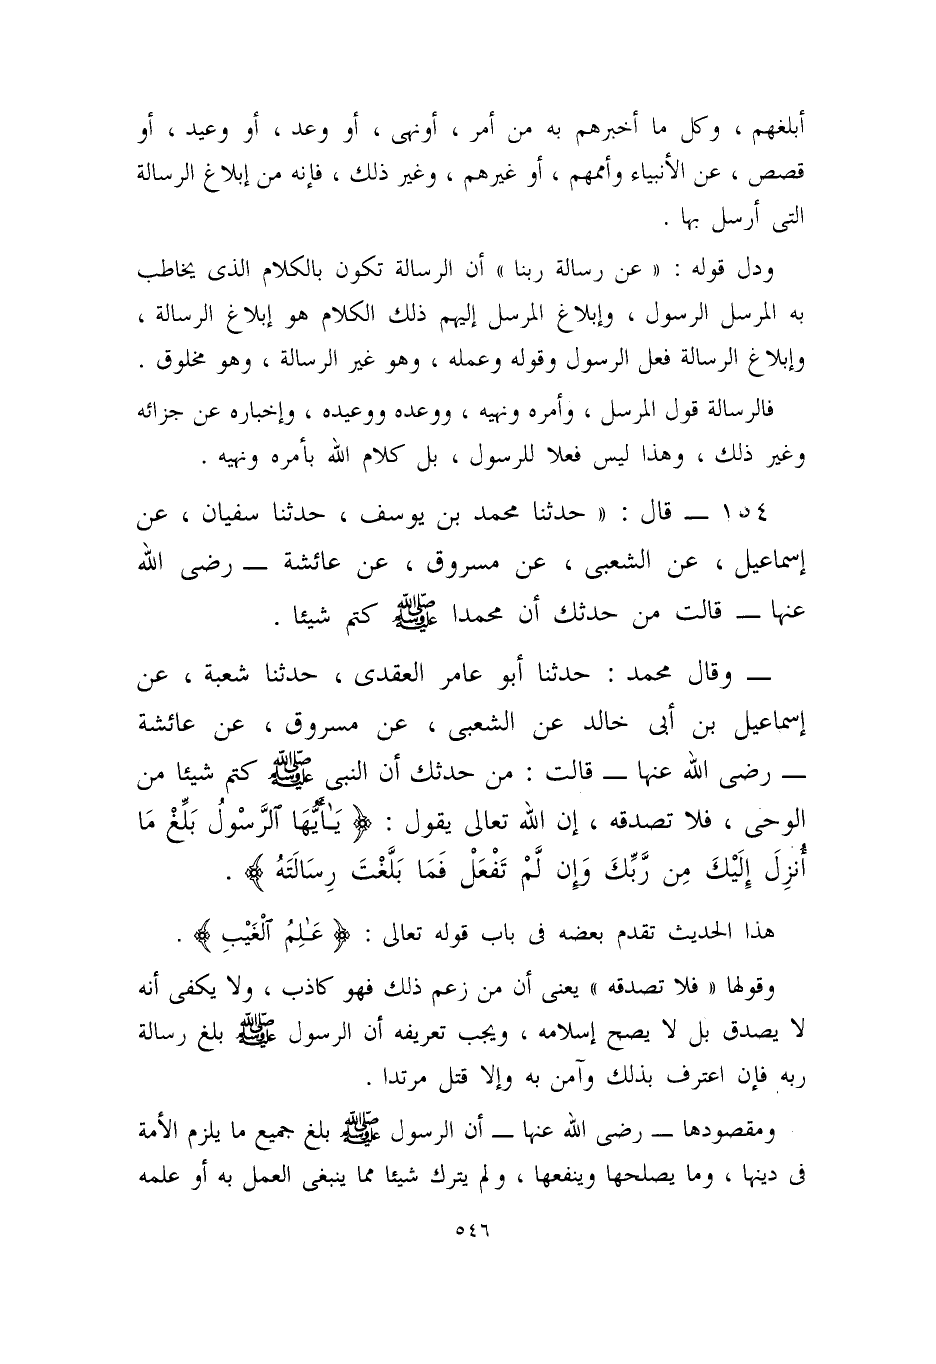 أبلغهم ، وكل ما أخبرهم به من أمر ، أونهى ، أو وعد ، أو وعيد ، أو
قصص ، عن الأنبياء وأممهم ، أو غيرهم ، وغير ذلك ، فإنه من إبلاغ الرسالة
التى أرسل بها .
ودل قوله : « عن رسالة ربنا » أن الرسالة تكون بالكلام الذى يخاطب
به المرسل الرسول ، وإبلاغ المرسل إليهم ذلك الكلام هو إبلاغ الرسالة ،
وإبلاغ الرسالة فعل الرسول وقوله وعمله ، وهو غير الرسالة ، وهو مخلوق .
فالرسالة قول المرسل ، وأمره ونهيه ، ووعده ووعيده ، وإخباره عن جزائه
وغير ذلك ، وهذا ليس فعلا للرسول ، بل كلام الله بأمره ونهيه .
١٥٤ ــ قال : « حدثنا محمد بن يوسف ، حدثنا سفيان ، عن
إسماعيل ، عن الشعبى ، عن مسروق ، عن عائشة ــ رضى الله
عنها ــ قالت من حدثك أن محمدا ﷺ كتم شيئا .
ــ وقال محمد : حدثنا أبو عامر العقدى ، حدثنا شعبة ، عن
إسماعيل بن أبى خالد عن الشعبى ، عن مسروق ، عن عائشة
ــ رضى الله عنها ــ قالت : من حدثك أن النبى ﷺ كتم شيئا من
الوحى ، فلا تصدقه ، إن الله تعالى يقول : ﴿ يَـٰأَيُّهَا ٱلرَّسُولُ بَلِّغْ مَا
أُنزِلَ إِلَيْكَ مِن رَّبِّكَ وَإِن لَّمْ تَفْعَلْ فَمَا بَلَّغْتَ رِسَالَتَهُ ﴾ .
هذا الحديث تقدم بعضه فى باب قوله تعالى : ﴿ عَـٰلِمُ ٱلْغَيْبِ ﴾ .
وقولها « فلا تصدقه » يعنى أن من زعم ذلك فهو كاذب ، ولا يكفى أنه
لا يصدق بل لا يصح إسلامه ، ويجب تعريفه أن الرسول ﷺ بلغ رسالة
ربه فإن اعترف بذلك وآمن به وإلا قتل مرتدا .
ومقصودها ــ رضى الله عنها ــ أن الرسول ﷺ بلغ جميع ما يلزم الأمة
فى دينها ، وما يصلحها وينفعها ، ولم يترك شيئا مما ينبغى العمل به أو علمه
٥٤٦